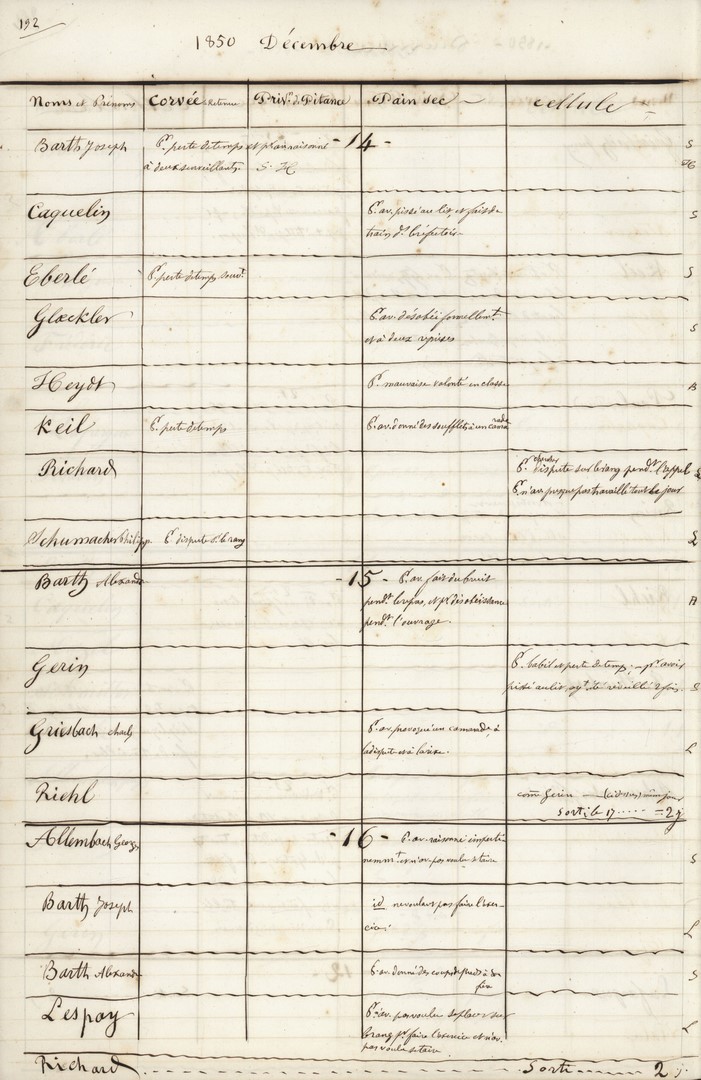 192
1850 Décembre
Noms et Prénoms Corvée et Retenue Priv.on de Pitance Pain sec cellule
- 14 -
Barth Joseph Pr. perte de temps et pr av. raisonné S
à deux surveillants. S. H H
Caquelin Pr. av. pissé au lit, et fait du S
train ds. le réfectoire
Eberlé Pr. perte de temps souvt. S
Glœckler Pr. av. désobéi formellemt. S
et à deux reprises
Heydt Pr. mauvaise volonté en classe B
Keil Pr. perte de temps Pr. av. donné des soufflets à un camarade
Richard Pr. dispute sur le rang pendt. l'appel
Pr. n'av. presque pas travaillé tout le jour
Schumacher Philippe Pr. dispute sr. le rang
- 15 -
Barth Alexandre Pr. av. fait du bruit A
pendt. le repas, et pr. désobéissance
pendt. l'ouvrage.
Gerin Pr. babil et perte de temps; - pr. avoir
pissé au lit, ayt. été réveillé 2 fois. S
Griesbach Charles Pr. av. provoqué un camarade, à L
la dispute et à la rixe.
Riehl comme Gerin - (ci-dessus) même jour
Sorti le 17 ..... = 2 j.
- 16 -
Allembach Georges Pr. av. raisonné imperti-
nemmt. et n'av. pas voulu se taire S
Barth Joseph id ne voulant pas faire l'exer-
cice. L
Barth Alexandre Pr. av. donné des coups de pieds à son S
Lespay Pr. av. pas voulu se placer sur L
le rang pr. faire l'exercice et n'av.
pas voulu se taire
Richard Sorti 2 j.